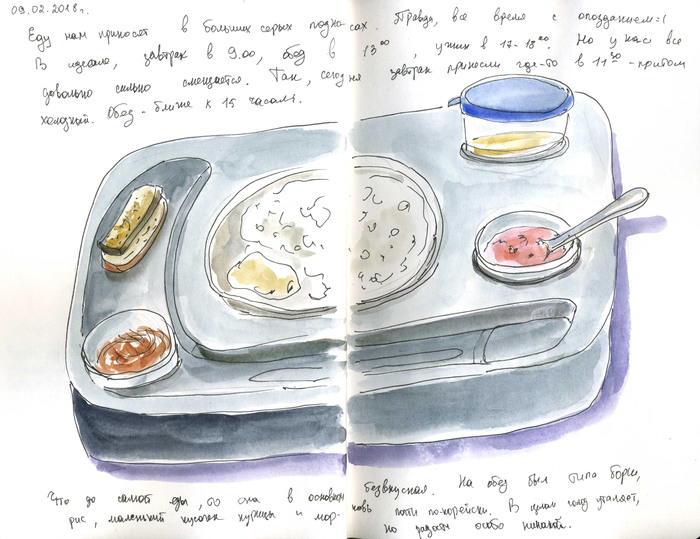 09.02.2018г.
Еду нам приносят в больших серых подносах. Правда, все время с опозданием:(
В идеале, завтрак в 9.00, обед в 13⁰⁰, ужин в 17-18⁰⁰. Но у нас все
довольно сильно смещается. Так, сегодня завтрак принесли где-то в 11³⁰ - притом
холодный. Обед - ближе к 15 часам.
Что до самой еды, то она в основном безвкусная. На обед был типа борщ,
рис, маленький кусочек курицы и морковь почти по-корейски. В целом голод утоляет,
но радости особо никакой.